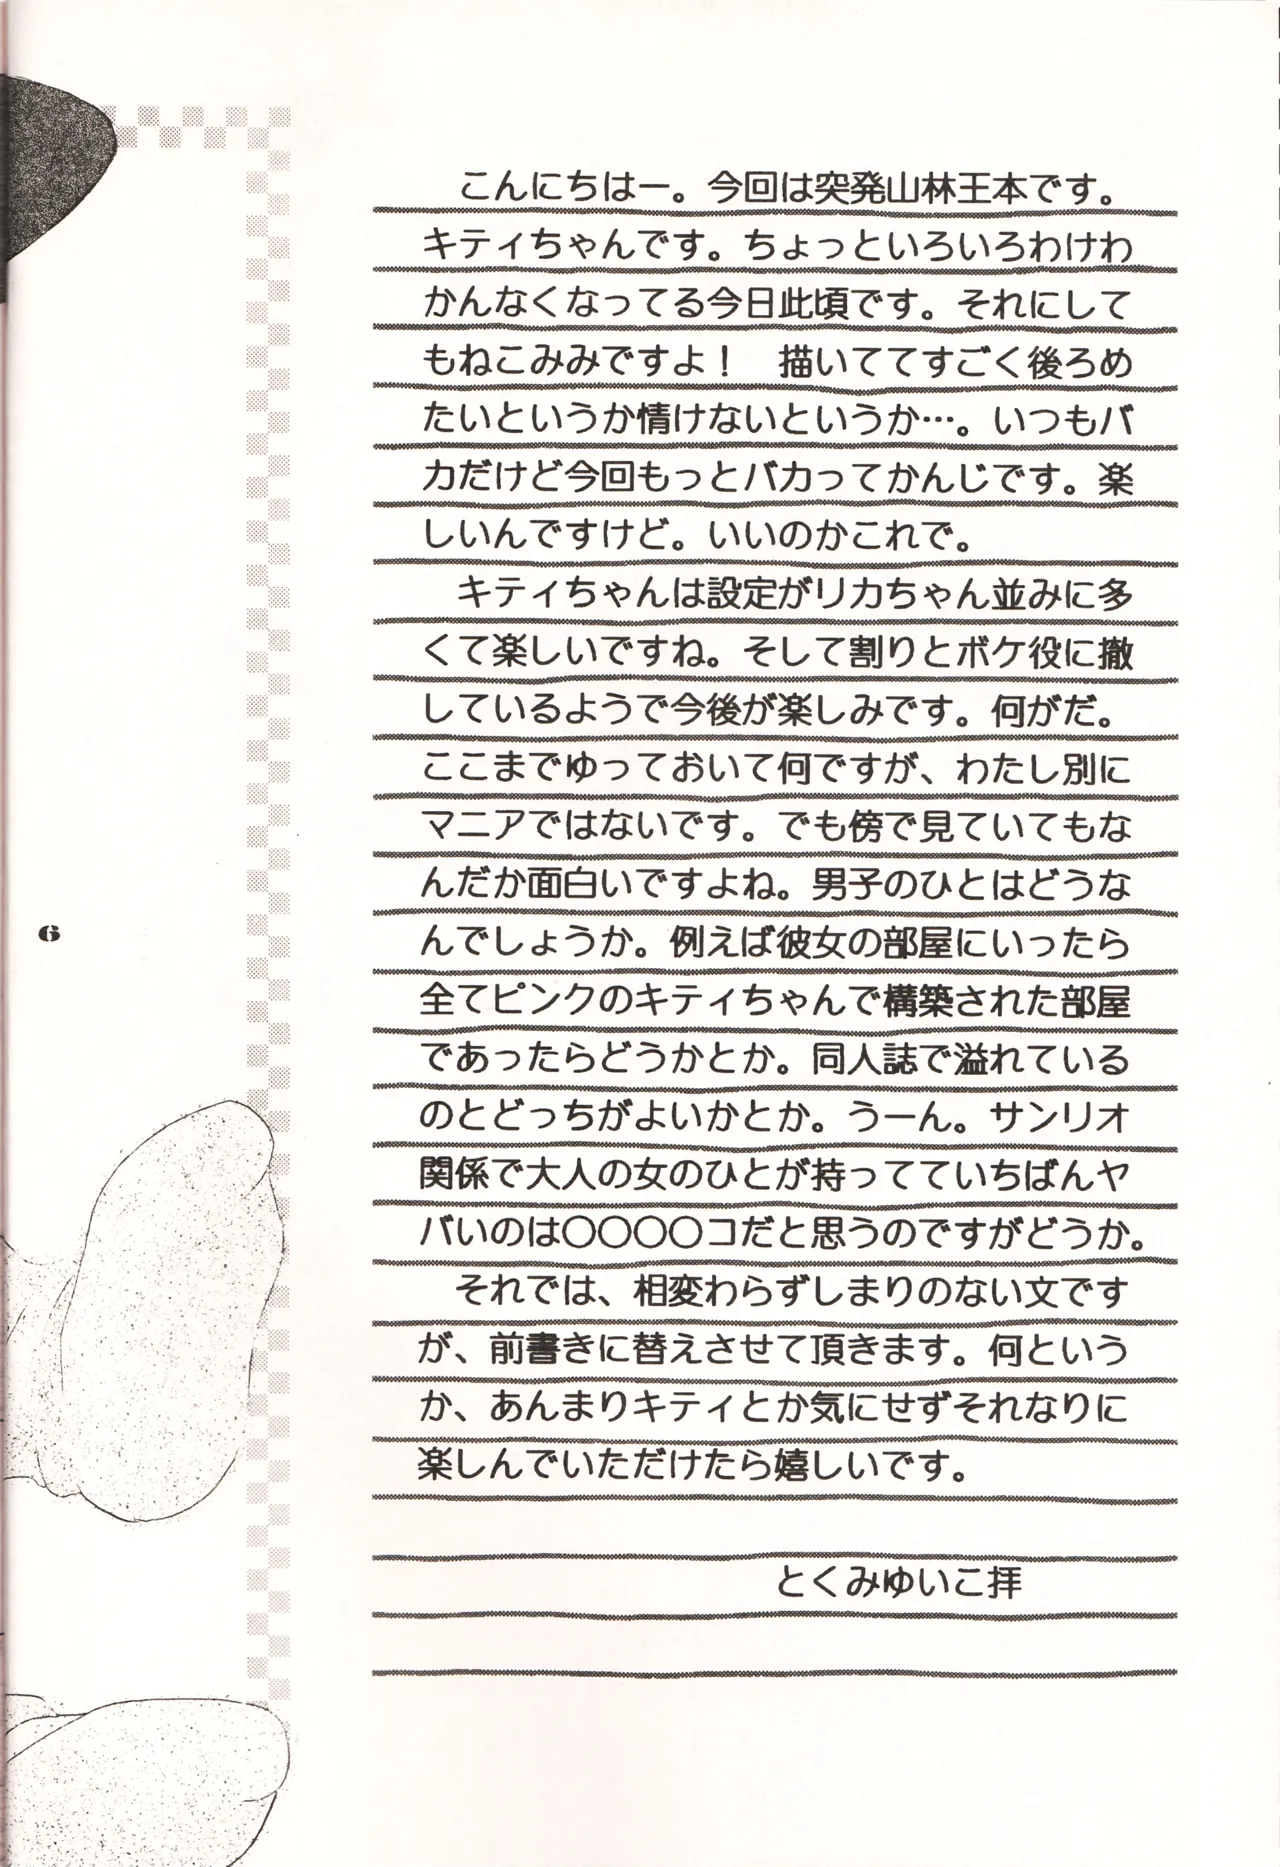 こんにちはー。今回は突発山林王本です。
キティちゃんです。ちょっといろいろわけわ
かんなくなってる今日此頃です。それにして
もねこみみですよ！　描いててすごく後ろめ
たいというか情けないというか…。いつもバ
カだけど今回もっとバカってかんじです。楽
しいんですけど。いいのかこれで。
キティちゃんは設定がリカちゃん並みに多
くて楽しいですね。そして割りとボケ役に撤
しているようで今後が楽しみです。何がだ。
ここまでゆっておいて何ですが、わたし別に
マニアではないです。でも傍で見ていてもな
んだか面白いですよね。男子のひとはどうな
んでしょうか。例えば彼女の部屋にいったら
全てピンクのキティちゃんで構築された部屋
であったらどうかとか。同人誌で溢れている
のとどっちがよいかとか。うーん。サンリオ
関係で大人の女のひとが持ってていちばんヤ
バいのは〇〇〇〇コだと思うのですがどうか。
それでは、相変わらずしまりのない文です
が、前書きに替えさせて頂きます。何という
か、あんまりキティとか気にせずそれなりに
楽しんでいただけたら嬉しいです。
とくみゆいこ拝
6